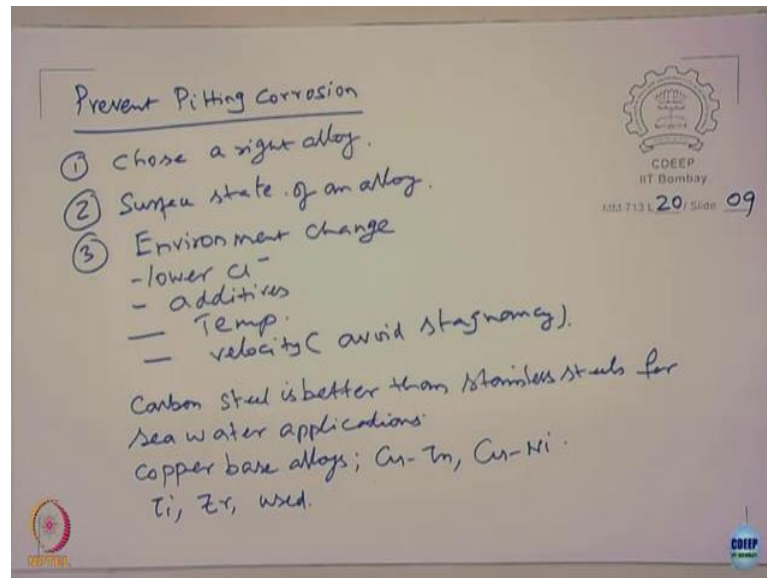 Prevent Pitting Corrosion
① Chose a right alloy.
② Surface state of an alloy.
③ Environment change
- lower Cl⁻
- additives
- Temp.
- velocity ( avoid stagnancy).
Carbon steel is better than stainless steels for
sea water applications.
copper base alloys; Cu-Zn, Cu-Ni.
Ti, Zr, used.
CDEEP
IIT Bombay
MM 713 L 20 / Slide 09
NPTEL
CDEEP
IIT BOMBAY